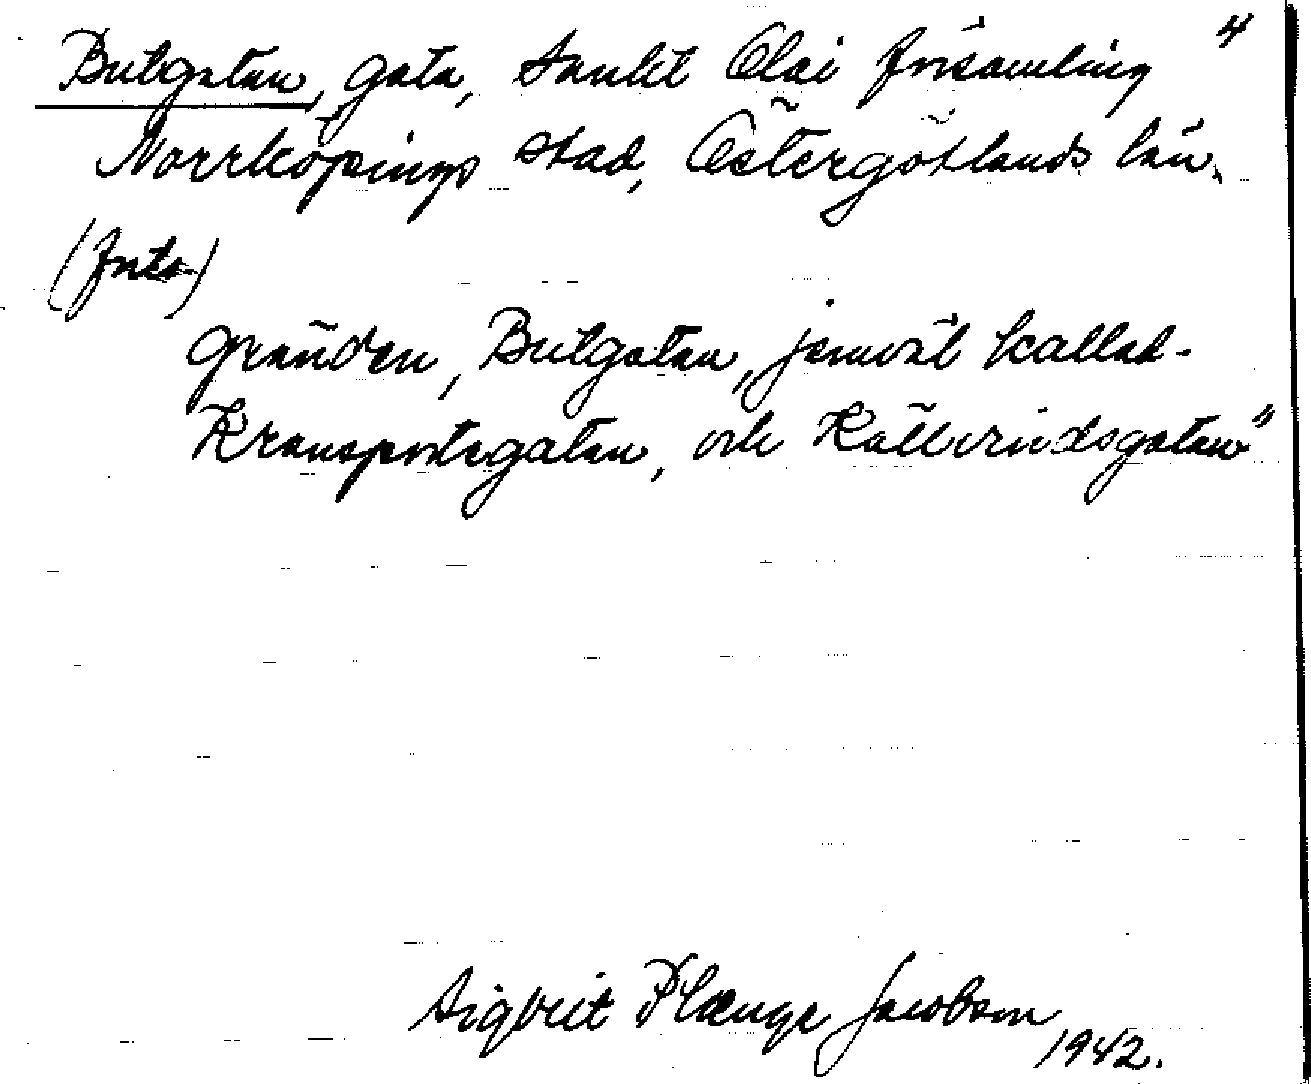 4
Bulgatan, gata, Sankt Olai församling
Norrköpings stad, Östergötlands län.
(forts.)
gränden, Bulgatan, jemväl kallad-
Kransportsgatan, och Källvindsgatan"
Sigbrit Plænge Jacobson
1942.